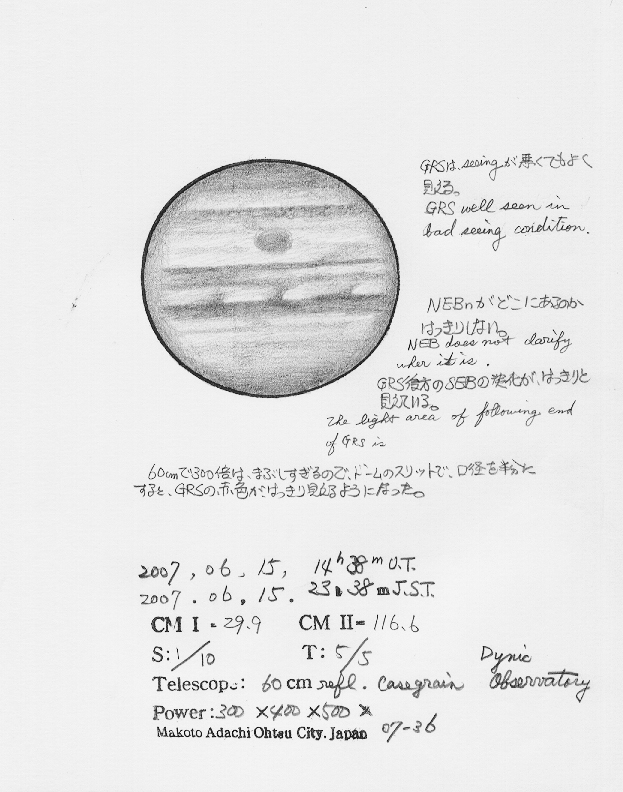 GRSは、seeingが悪くてもよく
見える。
GRS well seen in
bad seeing condition.
NEBnがどこにあるのか
はっきりしない。
NEB does not clarify
wher it is.
GRS後方のSEBの淡化が、はっきりと
見えている。
The light area of following end
of GRS is
60cmで300倍は、まぶしすぎるので、ドームのスリットで、口径を半分に
すると、GRSの赤色がはっきり見えるようになった。
2007, 06, 15, 14h 38m U.T.
2007. 06, 15. 23h 38m J.S.T.
CM I = 29.9 CM II= 116.6
S: 1/10 T: 5/5 Dynic
Telescope: 60 cm refl. Casegrain Observatory
Power: 300 ×400 ×500 ×
Makoto Adachi Ohtsu City. Japan 07-36